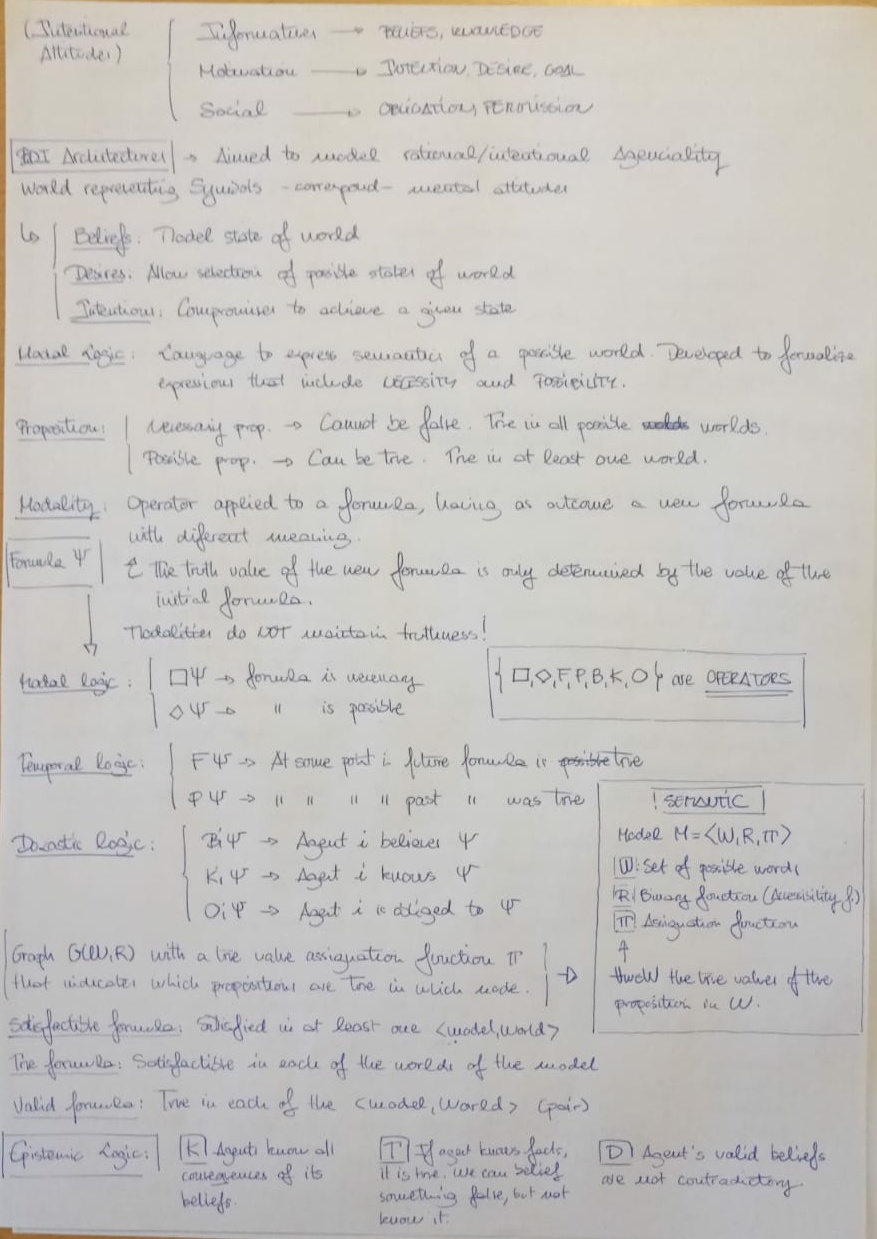 (Intentional Attitudes)
Informatives → BELIEFS, KNOWLEDGE
Motivation → INTENTION, DESIRE, GOAL
Social → OBLIGATION, PERMISSION
BDI Architectures → Aimed to model rational/intentional Agenciality
World representing Symbols - correspond - mental attitudes
↳ Beliefs: Model state of world
Desires: Allow selection of posible states of world
Intentions: Compromises to achieve a given state
Modal Logic: Language to express semantics of a possible world. Developed to formalize
expresions that include NECESSITY and POSSIBILITY.
Proposition: Necessary prop. → Cannot be false. True in all possible worlds.
Possible prop. → Can be true. True in at least one world.
Modality: Operator applied to a formula, having as outcome a new formula
with diferent meaning.
Formula Ψ
The truth value of the new formula is only determined by the value of the
initial formula.
Modalities do NOT maintain truthness!
Modal logic: □Ψ → formula is necessary
◇Ψ → " is possible
{□,◇,F,P,B,K,O} are OPERATORS
Temporal logic: FΨ → At some point in future formula is possible true
PΨ → " " " " past " was true
Doxastic logic: BiΨ → Agent i believes Ψ
KiΨ → Agent i knows Ψ
OiΨ → Agent i is obliged to Ψ
! SEMANTIC !
Model M = <W,R,π>
W: Set of possible words
R: Binary function (Accesibility f.)
π: Assignation function
↑
the true values of the
proposition in W.
Graph G(W,R) with a true value assignation function π
that indicates which propositions are true in which node.
Satisfactible formula: Satisfied in at least one <model,world>
True formula: Satisfactible in each of the worlds of the model
Valid formula: True in each of the <model, World> (pair)
Epistemic Logic:
K Agents know all
consequences of its
beliefs.
T If agent knows facts,
it is true. We can belief
something false, but not
know it.
D Agent's valid beliefs
are not contradictory